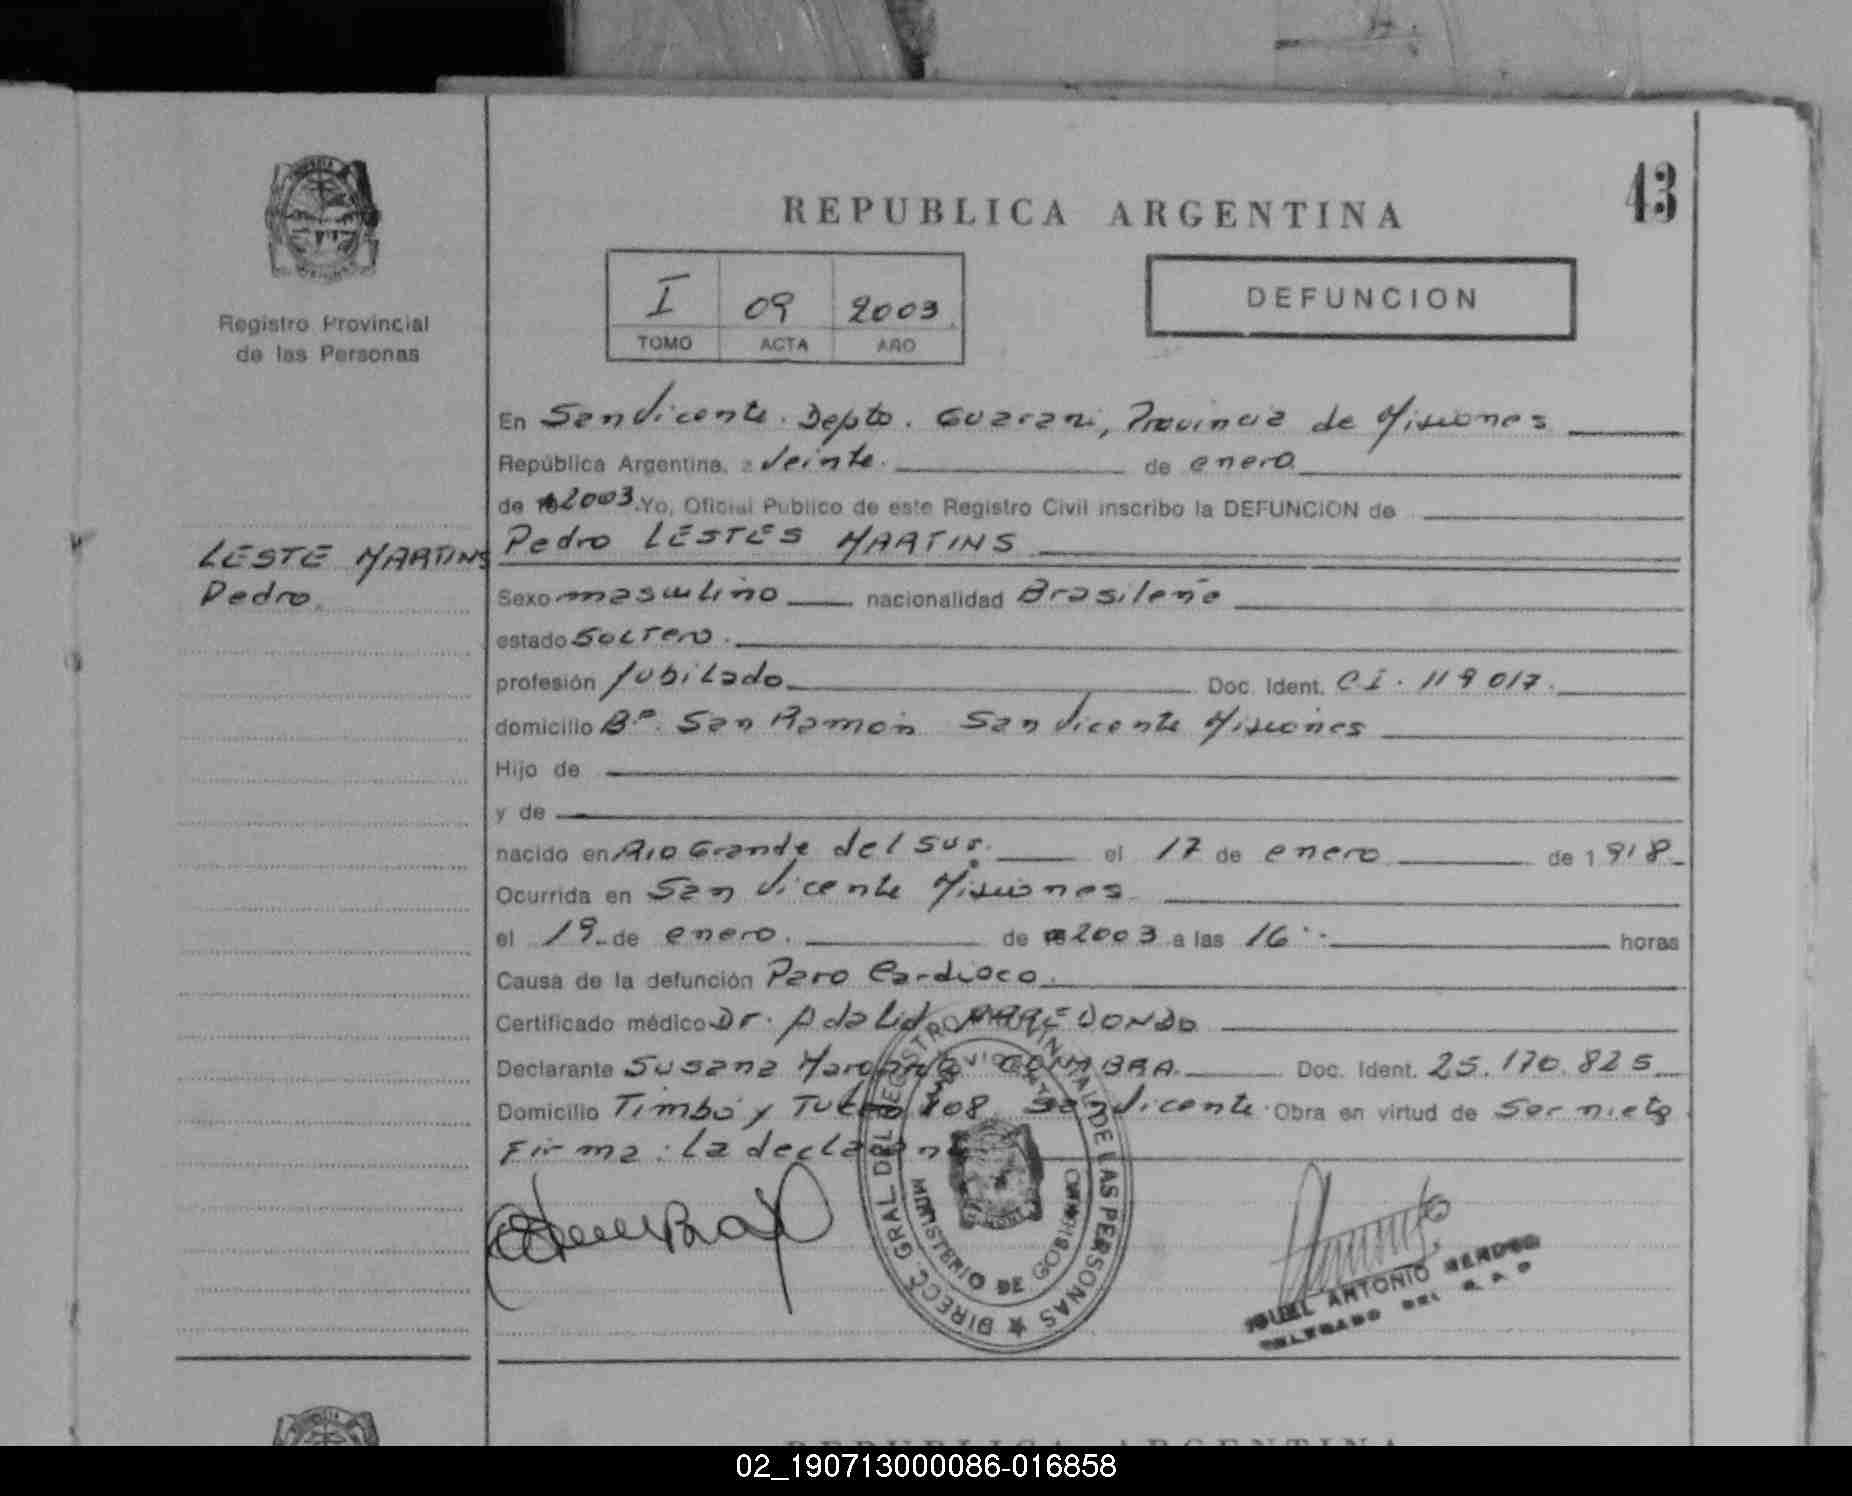 43
REPUBLICA ARGENTINA
I 09 2003
TOMO ACTA AÑO
DEFUNCION
Registro Provincial
de las Personas
LESTE MARTINS
Pedro
En San Vicente. Depto. Guarani, Provincia de Misiones
República Argentina, a Veinte. de enero
de 2003. Yo, Oficial Publico de este Registro Civil inscribo la DEFUNCION de
Pedro LESTES MARTINS
Sexo masculino nacionalidad Brasileño
estado SOLTero.
profesión Jubilado Doc. Ident. C.I. 119017.
domicilio Bº. San Ramón San Vicente Misiones
Hijo de
y de
nacido en Rio Grande del Sur. el 17 de enero de 1918
Ocurrida en San Vicente Misiones
el 19 de enero. de 2003 a las 16 horas
Causa de la defunción Paro Cardiaco.
Certificado médico Dr. Adalid ARREDONDO
Declarante Susana COIMBRA. Doc. Ident. 25.170.825
Domicilio Timbó y 108 San Vicente. Obra en virtud de Ser nieta
Firma: La declarante
DIRECC. GRAL. DEL REGISTRO PROVINCIAL DE LAS PERSONAS
MINISTERIO DE GOBIERNO
ANTONIO
DELEGADO DEL R. P. P
REPUBLICA ARGENTINA
02_190713000086-016858